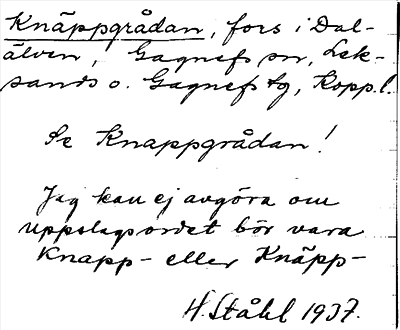 Knäppgrådan, fors i Dal-
älven, Gagnefs sn, Lek-
sands o. Gagnefs tg, Kopp.l.
Se Knappgrådan!
Jag kan ej avgöra om
uppslagsordet bör vara
Knapp- eller Knäpp-
H. Ståhl 1937.